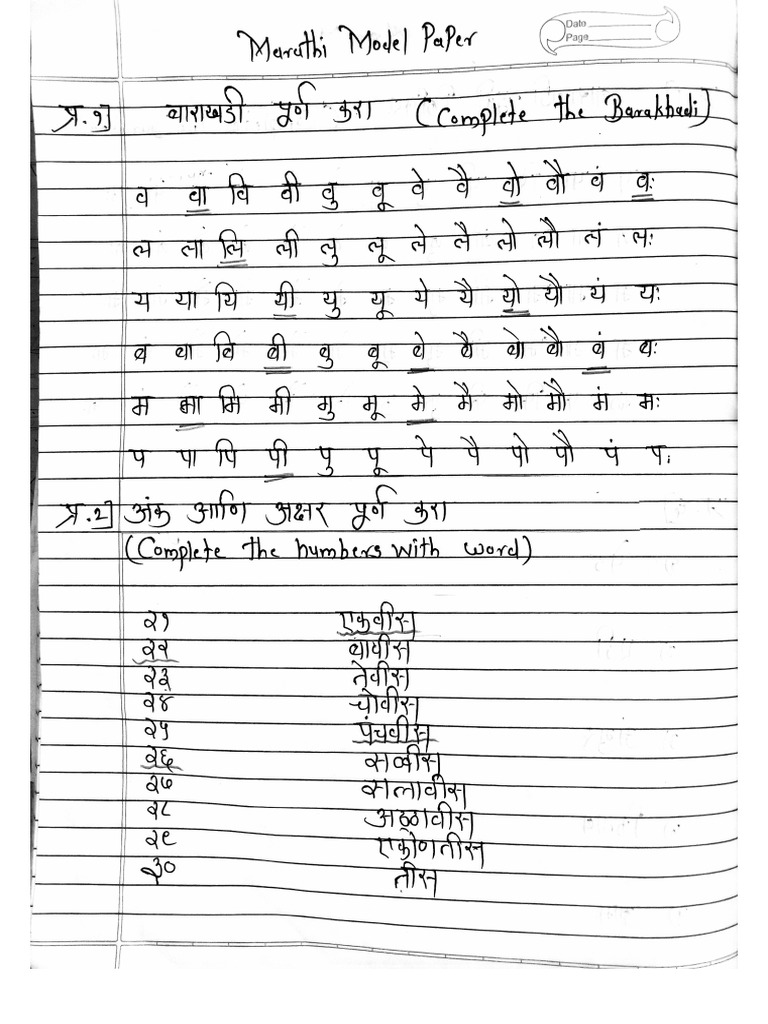 Marathi Model Paper
Date
Page
प्र.१] बाराखडी पूर्ण करा (Complete the Barakhadi)
व वा वि वी वु वू वे वै वो वौ वं वः
ल ला लि ली लु लू ले लै लो लौ लं लः
य या यि यी यु यू ये यै यो यौ यं यः
ब बा बि बी बु बू बे बै बो बौ बं बः
म मा मि मी मु मू मे मै मो मौ मं मः
प पा पि पी पु पू पे पै पो पौ पं पः
प्र.२] अंक आणि अक्षर पूर्ण करा
(Complete the numbers with word)
२१ एकवीस
२२ बावीस
२३ तेवीस
२४ चोवीस
२५ पंचवीस
२६ सव्वीस
२७ सत्तावीस
२८ अठ्ठावीस
२९ एकोणतीस
३० तीस